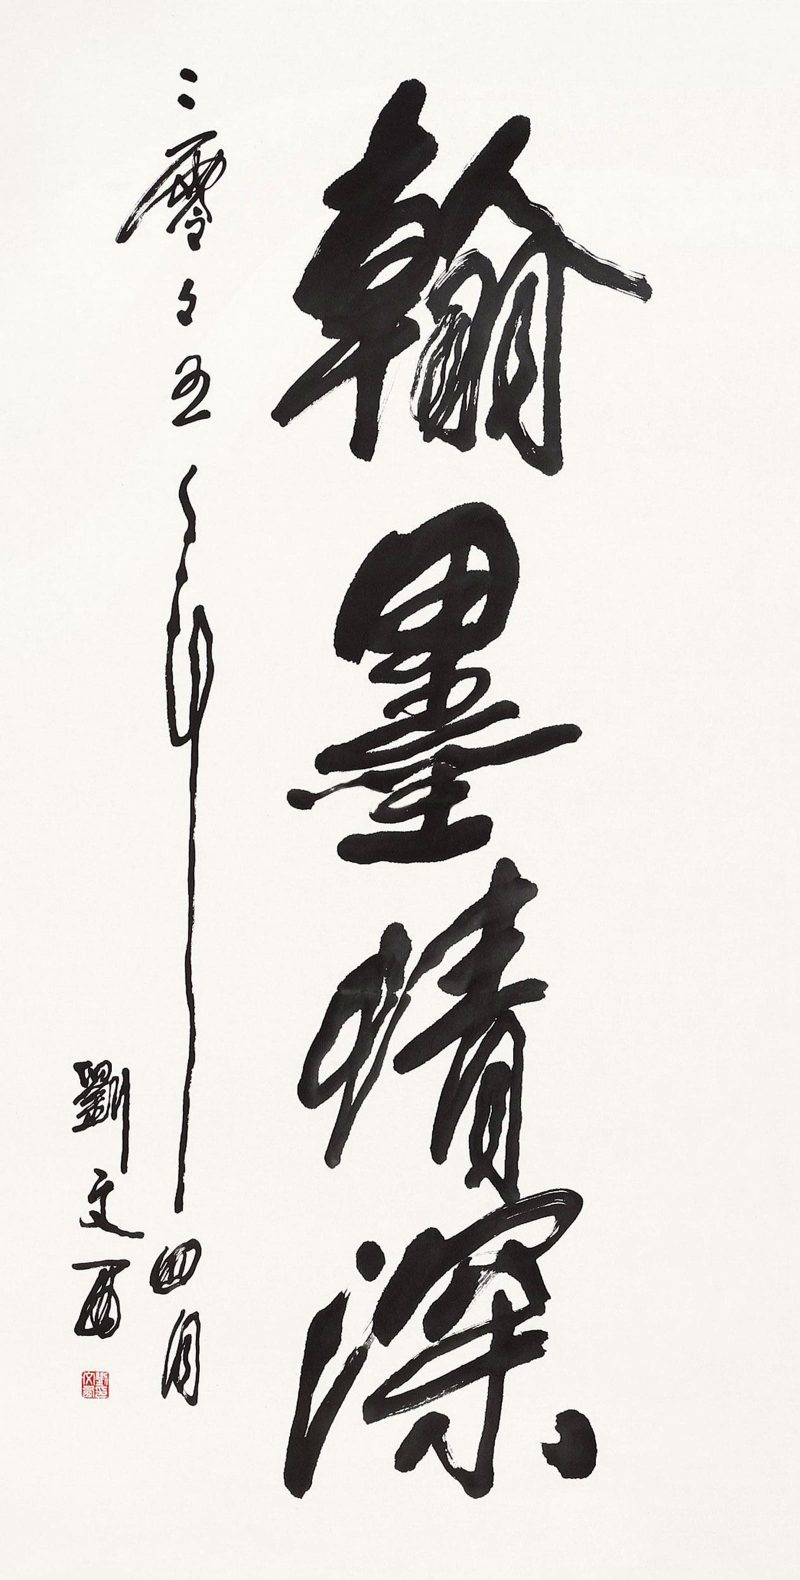 翰墨情深
二零々五年四月
劉文西